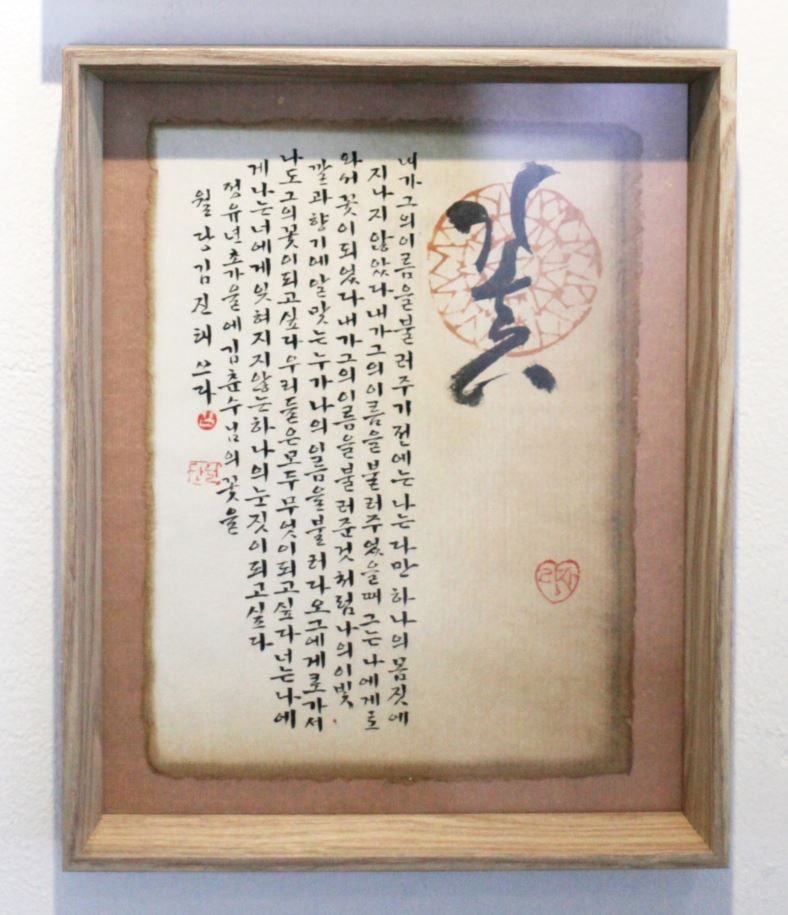 꽃
내가그의이름을불러주기전에는나는다만하나의몸짓에
지나지않았다내가그의이름을불러주었을때그는나에게로
와서꽃이되었다내가그의이름을불러준것처럼나의이빛
깔과향기에알맞는누가나의이름을불러다오그에게로가서
나도그의꽃이되고싶다우리들은모두무엇이되고싶다너는나에
게나는너에게잊혀지지않는하나의눈짓이되고싶다
정유년초가을에김춘수님의꽃을
월당김진태쓰다